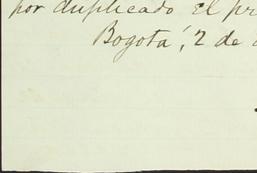 por duplicado El pr
Bogotá, 2 de